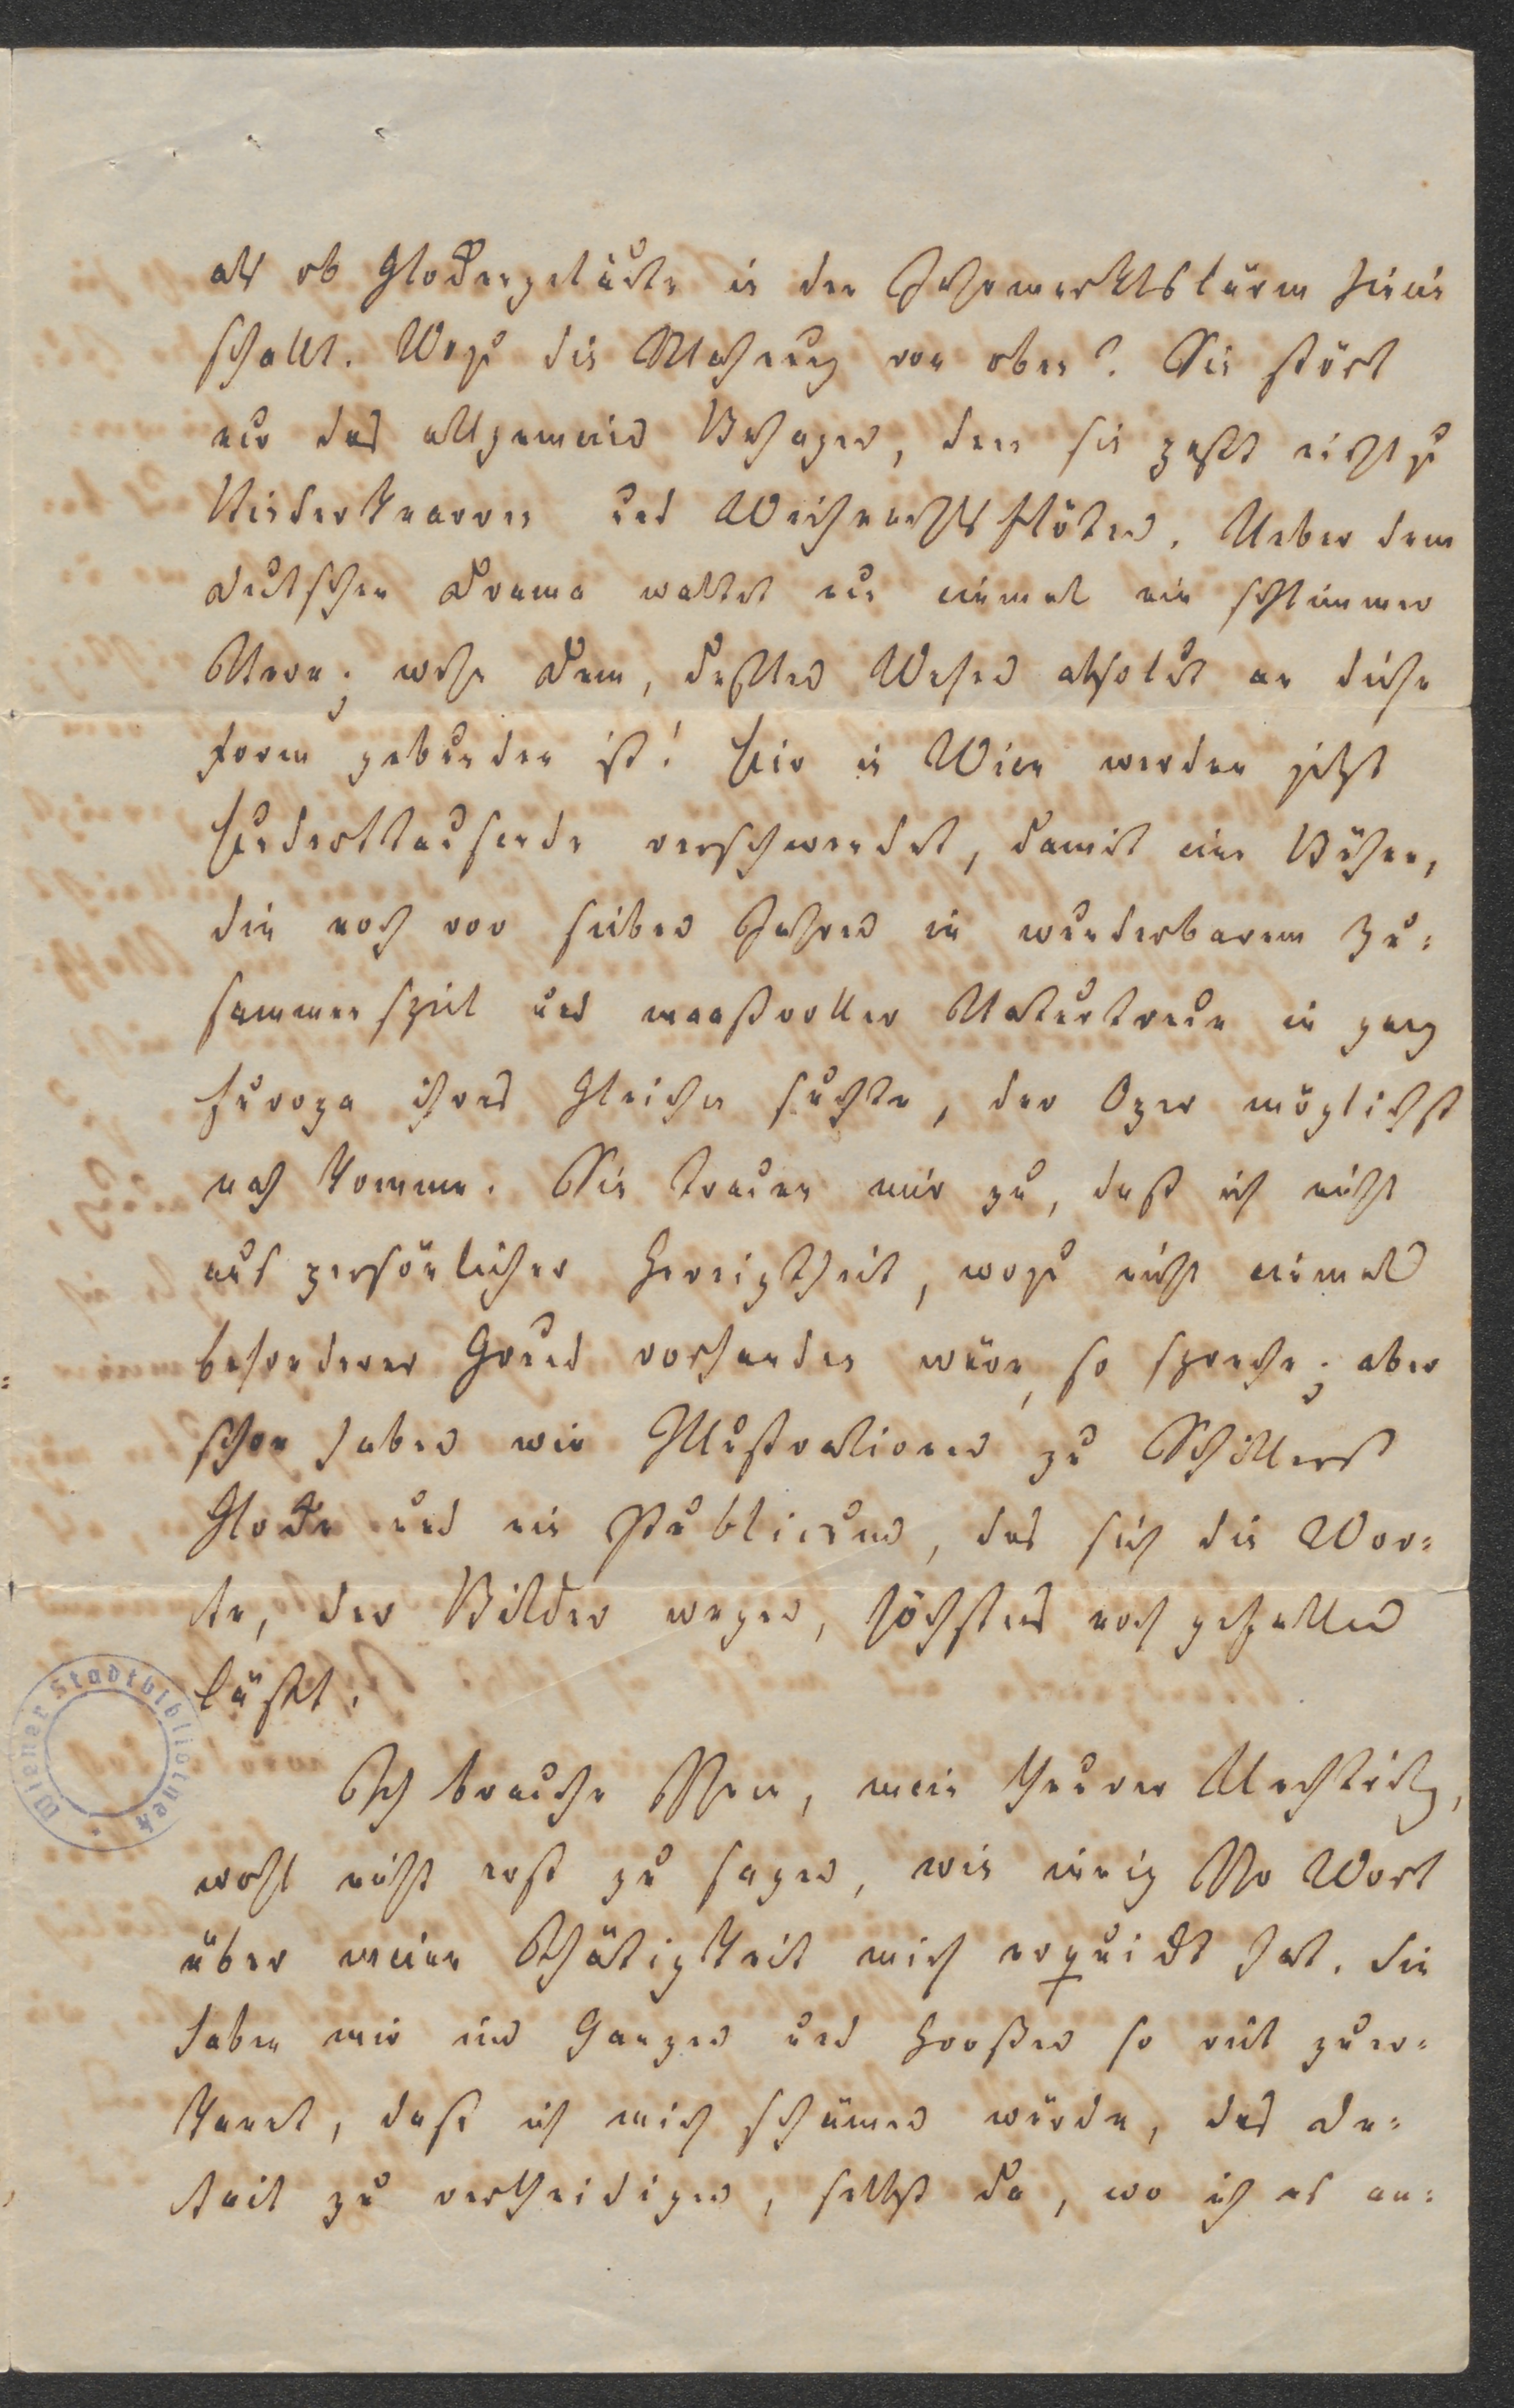 als ob Glockengeläute in den Jahrmarktslärm hinein
schallt. Wozu die Mahnung von oben? Sie stört
nur das allgemeine Behagen, denn sie paßt nicht zu
Kinderknarren und Weihnachtsflöten. Ueber dem
deutschen Drama waltet nun einmal ein schlimmer
Stern; wehe dem, dessen Wesen absolut an diese
Form gebunden ist! Hier in Wien werden jetzt
Hunderttausende verschwendet, damit eine Bühne,
die noch vor sieben Jahren in wunderbarem Zu-
sammenspiel und maaßvoller Naturtreue in ganz
Europa ihres Gleichen suchte, der Oper möglichst
nah komme. Sie trauen mir zu, daß ich nicht
aus persönlicher Gereiztheit, wozu nicht einmal
besonderer Grund vorhanden wäre, so spreche; aber
schon haben wir Illustrationen zu Schillers
Glocke und ein Publicum, das sich die Wor-
te, der Bilder wegen, höchstens noch gefallen
läßt.
Ich brauche Ihnen, mein theurer Uechtritz,
wohl nicht erst zu sagen, wie innig Ihr Wort
über meine Thätigkeit mich erquickt hat. Sie
haben mir im Ganzen und Großen so viel zuer-
kannt, daß ich mich schämen würde, das De-
tail zu vertheidigen, selbst da, wo ich es an-
Wiener Stadtbibliothek